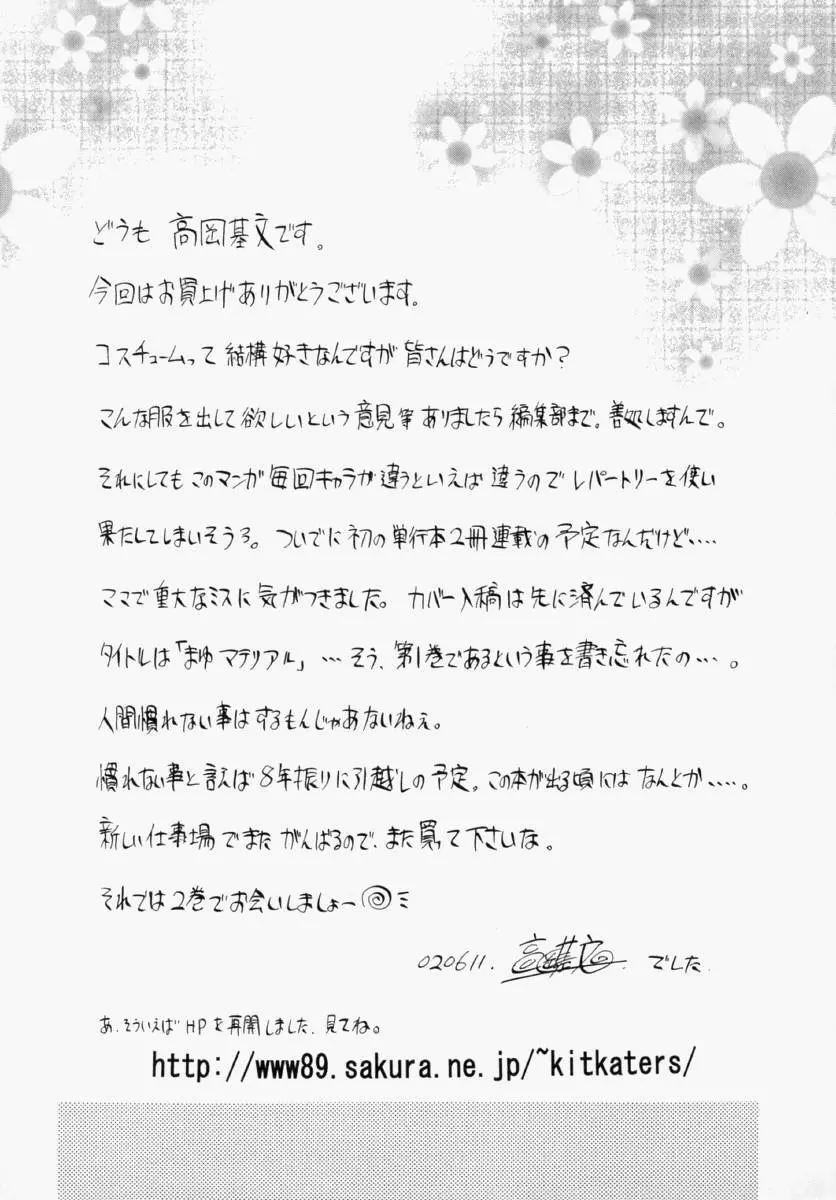 どうも 高岡基文です。
今回はお買上げありがとうございます。
コスチュームって結構好きなんですが皆さんはどうですか?
こんな服を出して欲しいという意見等ありましたら編集部まで。善処しますんで。
それにしてもこのマンガ毎回キャラが違うといえば違うのでレパートリーを使い
果たしてしまいそうろ。ついでに初の単行本2冊連載の予定なんだけど····
ママで重大なミスに気がつきました。カバー入稿は先に済んでいるんですが
タイトルは「まゆマテリアル」…そう、第1巻であるという事を書き忘れたの…。
人間慣れない事はするもんじゃあないねぇ。
慣れない事と言えば8年振りに引越しの予定。この本が出る頃にはなんとか····。
新しい仕事場でまたがんばるので、また買って下さいな。
それでは2巻でお会いしましょー
020611. 高岡基文 でした.
あ、そういえばHPを再開しました、見てね。
http://www89.sakura.ne.jp/~kitkaters/